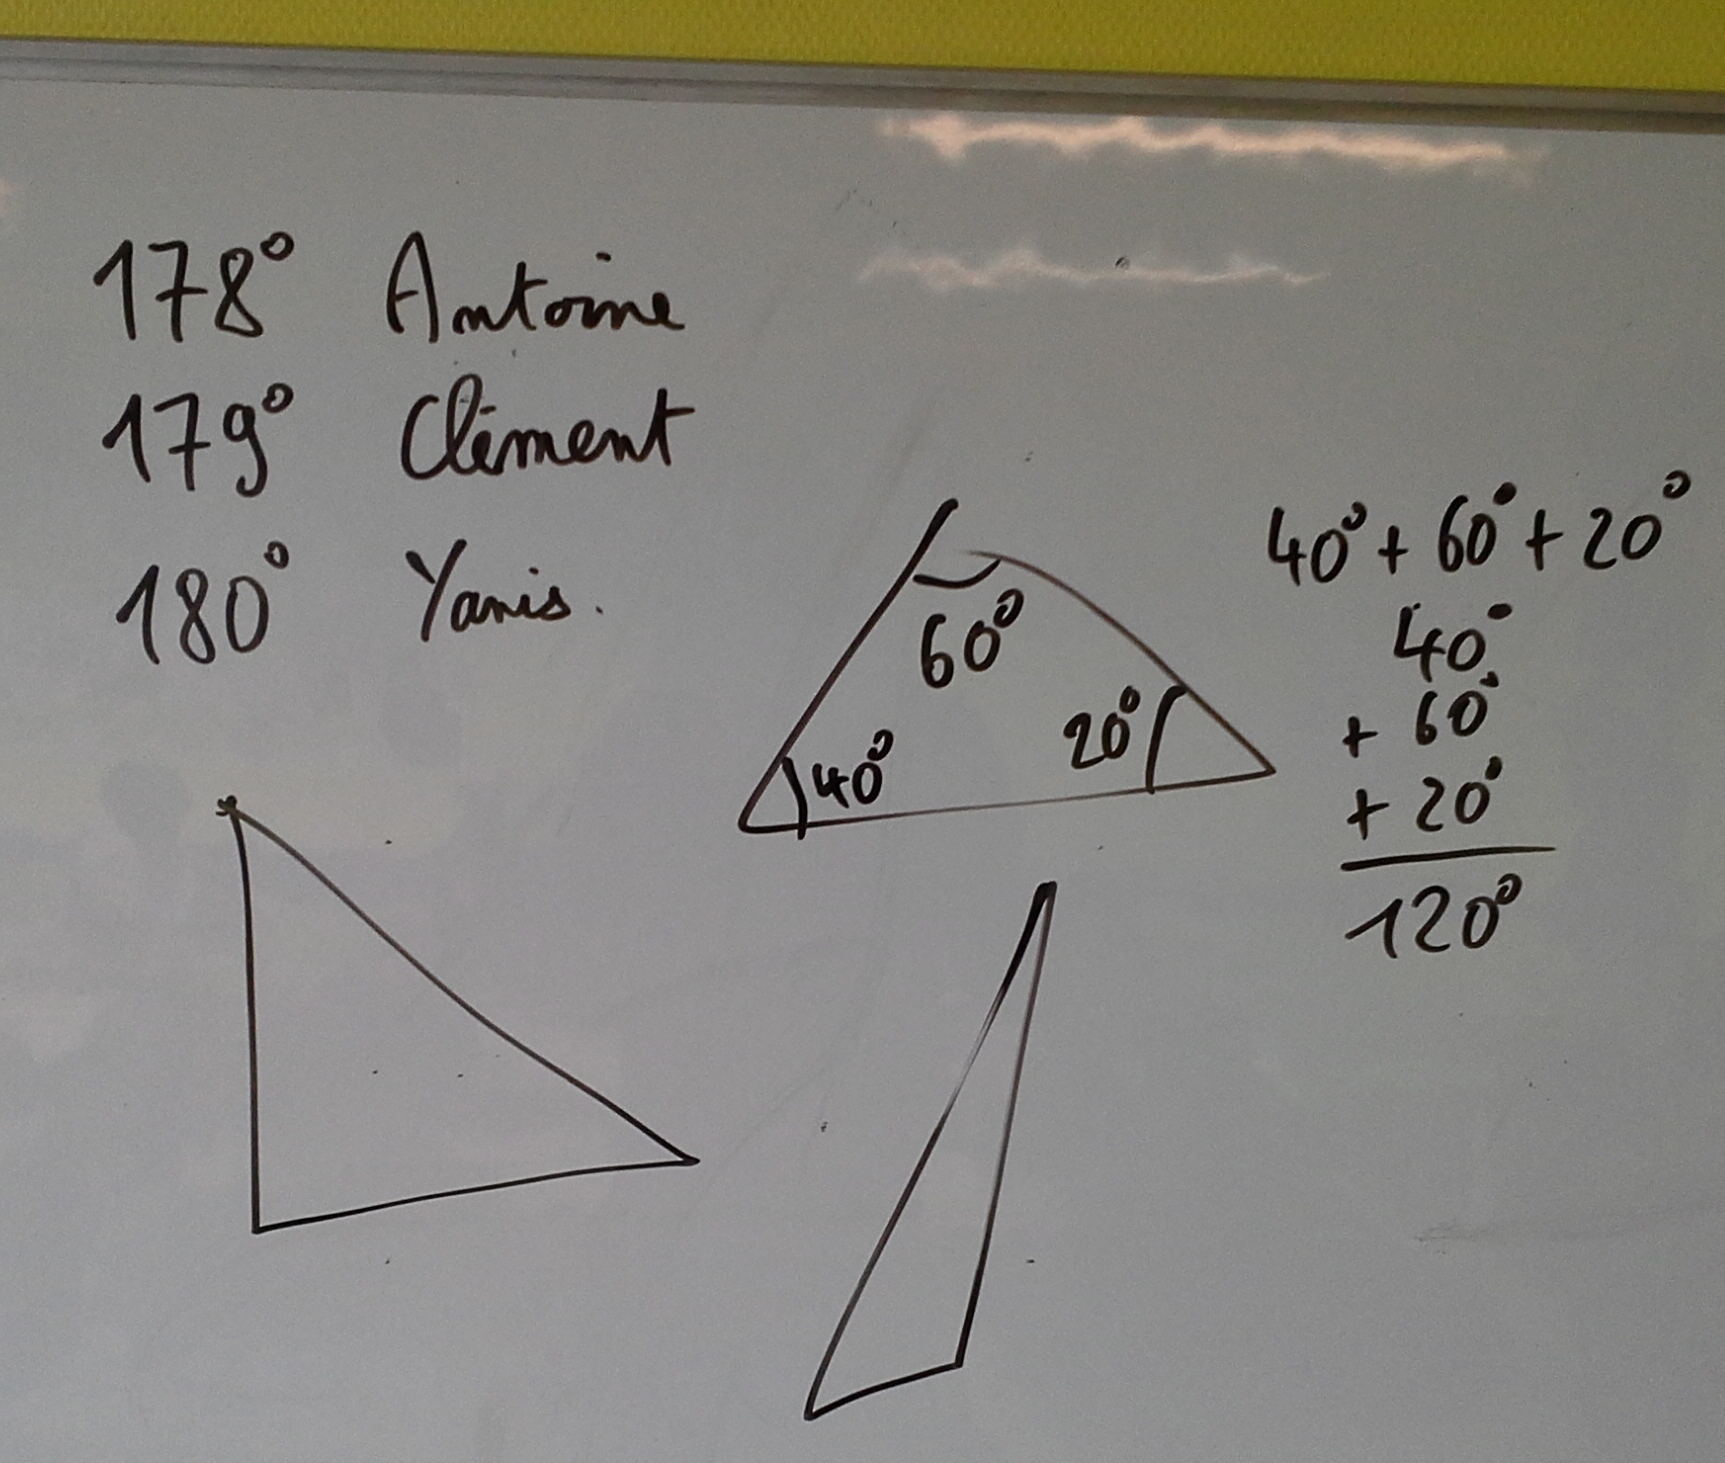 178° Antoine
179° Clément
180° Yanis.
60°
40°
20°
40° + 60° + 20°
40°
+ 60°
+ 20°
120°